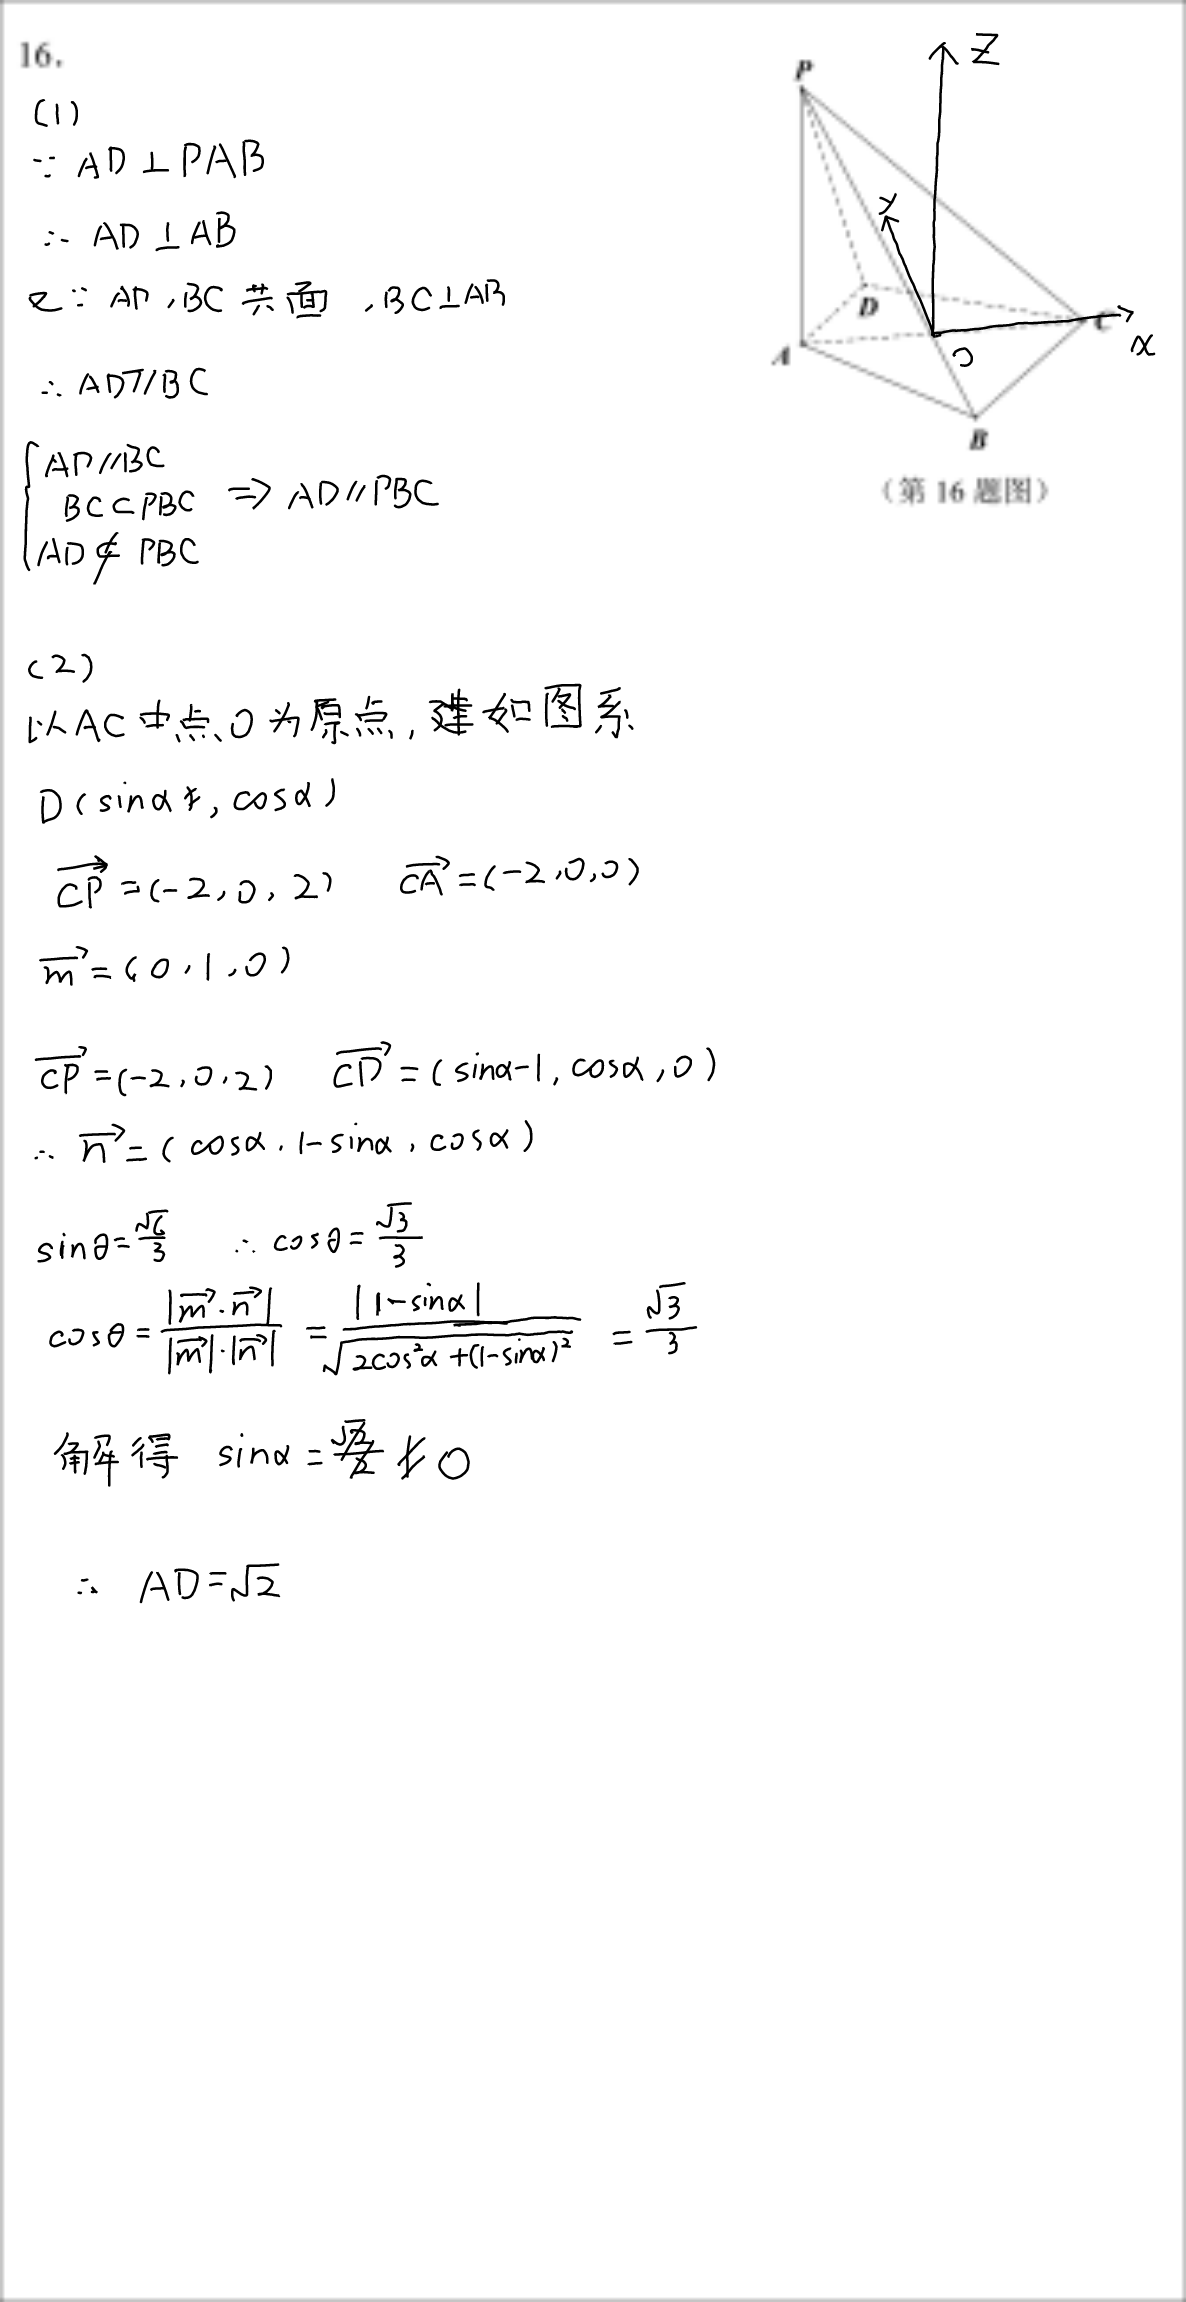 16.
(1)
∵ AD⊥PAB
∴ AD⊥AB
又∵ AD,BC共面,BC⊥AB
∴ AD//BC
AD//BC
BC⊂PBC ⇒ AD//PBC
AD⊄PBC
(2)
以AC中点O为原点,建如图系
D(sinα, cosα)
CP→=(-2,0,2) CA→=(-2,0,0)
m→=(0,1,0)
CP→=(-2,0,2) CD→=(sinα-1,cosα,0)
∴ n→=(cosα,1-sinα,cosα)
sinθ=√6/3 ∴ cosθ=√3/3
cosθ=|m→·n→|/|m→|·|n→| = |1-sinα|/√(2cos²α+(1-sinα)²) = √3/3
解得 sinα=0
∴ AD=√2
P
Z
y
D
C
A
O
x
B
(第 16 题图)